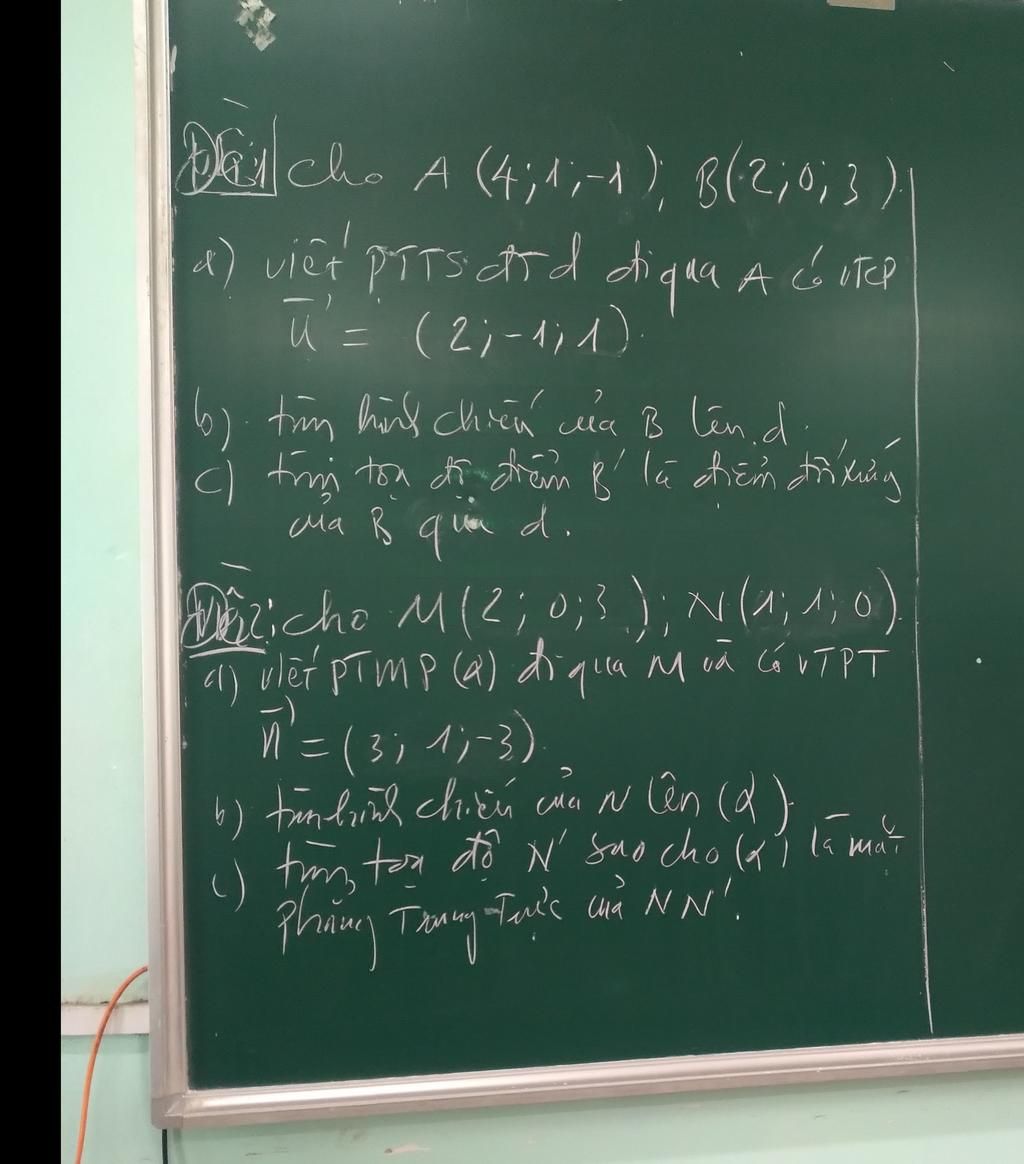 Đề 1 cho A (4; 1; -1); B(2; 0; 3).
a) viết PTTS đt d đi qua A có VTCP
u = (2; -1; 1).
b) tìm hình chiếu của B lên d.
c) tìm tọa độ điểm B' là điểm đối xứng
của B qua d.
Đề 2: cho M(2; 0; 3); N(1; 1; 0).
a) viết PTMP (α) đi qua M và có VTPT
n = (3; 1; -3).
b) tìm hình chiếu của N lên (α).
c) tìm tọa độ N' sao cho (α) là mặt
phẳng Trung Trực của NN'.